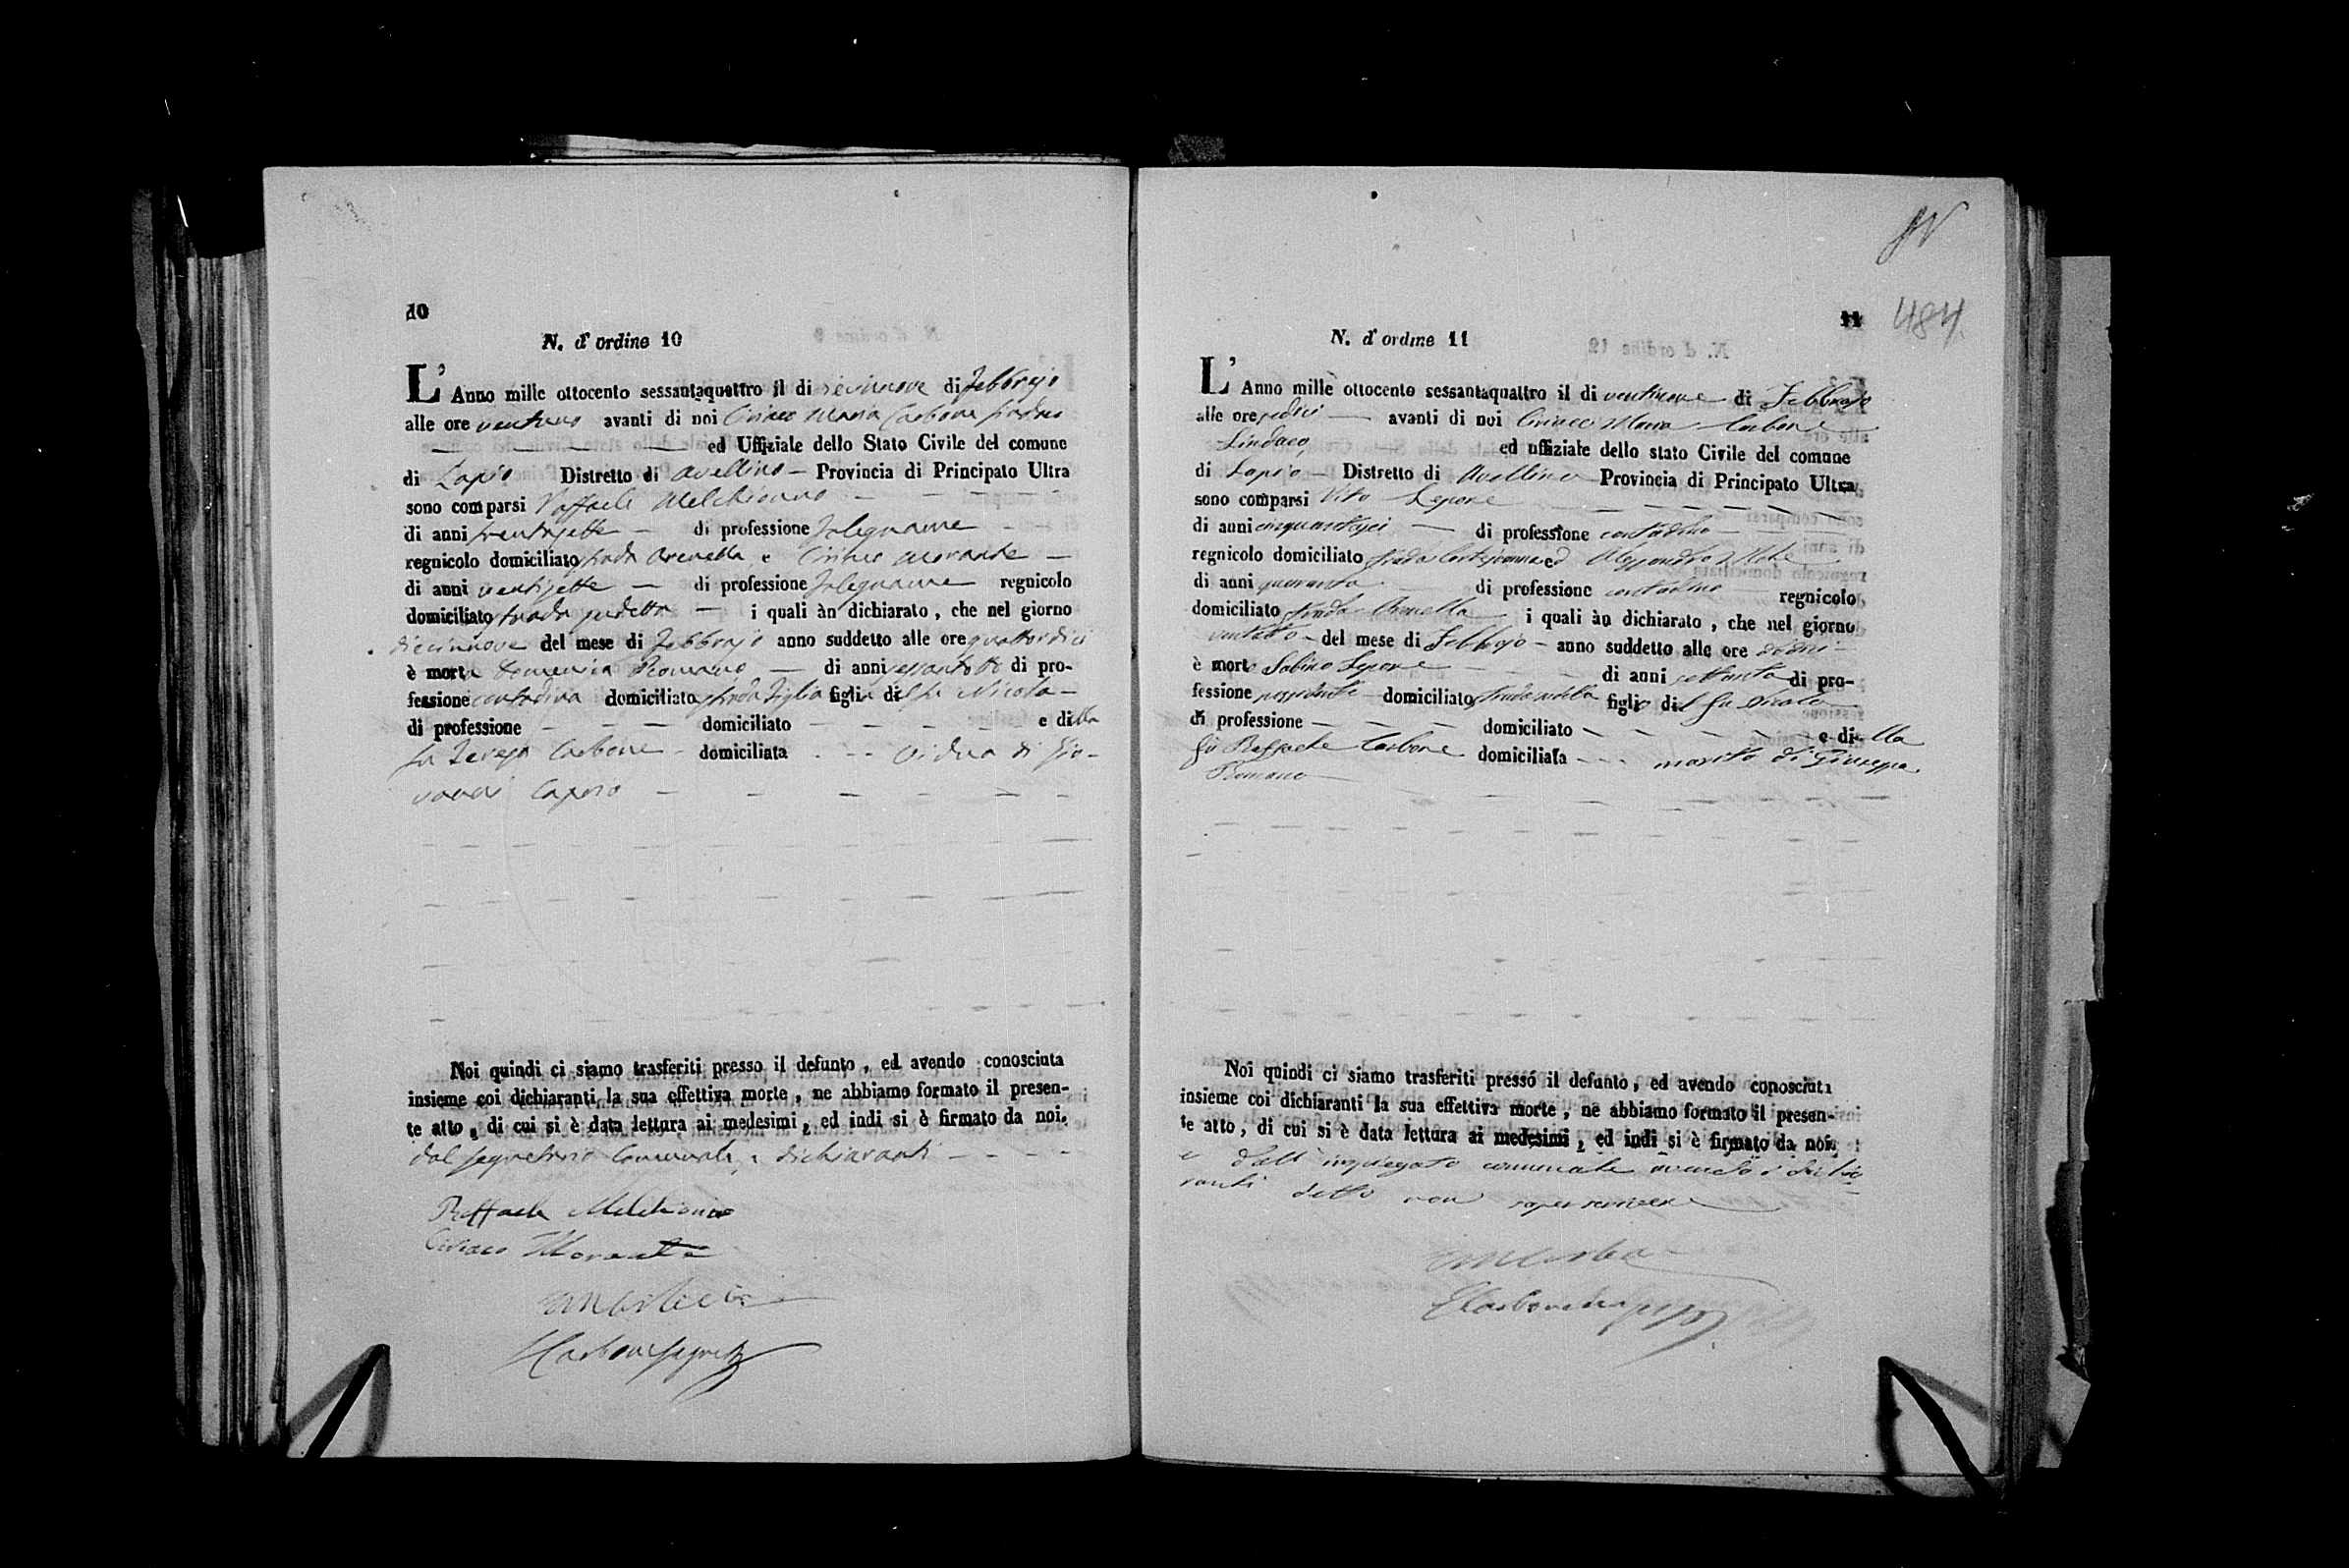 10
N. d' ordine 10
L' Anno mille ottocento sessantaquattro il di diecinnove di Febbrajo
alle ore ventuno avanti di noi Ciriaco Maria Carbone Sindaco
ed Uffiziale dello Stato Civile del comune
di Lapio Distretto di Avellino — Provincia di Principato Ultra
sono comparsi Raffaele Melchionno
di anni trentasette — di professione Falegname
regnicolo domiciliato strada Arenella, e Ciriaco Morante —
di anni ventisette — di professione Falegname regnicolo
domiciliato strada sudetta — i quali àn dichiarato, che nel giorno
diecinnove del mese di Febbrajo anno suddetto alle ore quattordici
è morta Domenica Romano — di anni sessantotto di pro-
fessione contadina domiciliato strada figlia di fu Nicola —
di professione — — — domiciliato — — — e di lla
fu Teresa Carbone — domiciliata . - - vidua di Gio-
vanni Caprio — — — — — —
Noi quindi ci siamo trasferiti presso il defunto, ed avendo conosciuta
insieme coi dichiaranti la sua effettiva morte, ne abbiamo formato il presen-
te atto, di cui si è data lettura ai medesimi, ed indi si è firmato da noi.
dal segretario Comunale, e dichiaranti — - - -
Raffaele Melchionno
Ciriaco Morante
Carbone Segret
484
11
N. d' ordine 11
L' Anno mille ottocento sessantaquattro il di ventinove di Febbrajo
alle ore sedici — avanti di noi Ciriaco Maria Carbone
Sindaco, ed uffiziale dello stato Civile del comune
di Lapio — Distretto di Avellino Provincia di Principato Ultra
sono comparsi Vito Lepore
di anni cinquantasei — di professione contadino —
regnicolo domiciliato strada ed Alessandro
di anni quaranta di professione contadino regnicolo
domiciliato strada Arenella i quali àn dichiarato, che nel giorno
ventotto — del mese di Febbrajo — anno suddetto alle ore
è morto Sabino Lepore di anni settanta di pro-
fessione possidente domiciliato strada sudetta figlio di l fu Nicola
di professione — — — domiciliato — — — e di lla
fu Raffaela Carbone domiciliata - - . marito di Giuseppa
Romano
Noi quindi ci siamo trasferiti presso il defunto, ed avendo conosciuta
insieme coi dichiaranti la sua effettiva morte, ne abbiamo formato il presen-
te atto, di cui si è data lettura ai medesimi, ed indi si è firmato da noi,
e dall' impiegato comunale avendo i dichia-
ranti detto non saper scrivere